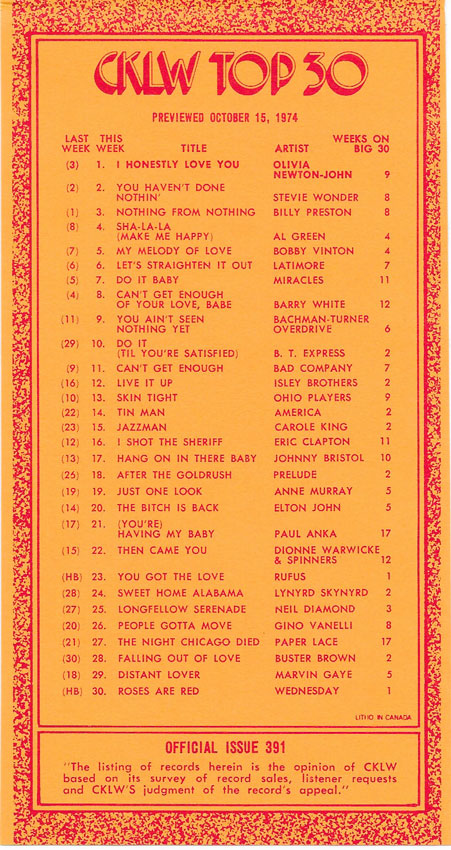 CKLW TOP 30
PREVIEWED OCTOBER 15, 1974
LAST THIS WEEKS ON
WEEK WEEK TITLE ARTIST BIG 30
(3) 1. I HONESTLY LOVE YOU OLIVIA
NEWTON-JOHN 9
(2) 2. YOU HAVEN'T DONE
NOTHIN' STEVIE WONDER 8
(1) 3. NOTHING FROM NOTHING BILLY PRESTON 8
(8) 4. SHA-LA-LA
(MAKE ME HAPPY) AL GREEN 4
(7) 5. MY MELODY OF LOVE BOBBY VINTON 4
(6) 6. LET'S STRAIGHTEN IT OUT LATIMORE 7
(5) 7. DO IT BABY MIRACLES 11
(4) 8. CAN'T GET ENOUGH
OF YOUR LOVE, BABE BARRY WHITE 12
(11) 9. YOU AIN'T SEEN BACHMAN-TURNER
NOTHING YET OVERDRIVE 6
(29) 10. DO IT
(TIL YOU'RE SATISFIED) B. T. EXPRESS 2
(9) 11. CAN'T GET ENOUGH BAD COMPANY 7
(16) 12. LIVE IT UP ISLEY BROTHERS 2
(10) 13. SKIN TIGHT OHIO PLAYERS 9
(22) 14. TIN MAN AMERICA 2
(23) 15. JAZZMAN CAROLE KING 2
(12) 16. I SHOT THE SHERIFF ERIC CLAPTON 11
(13) 17. HANG ON IN THERE BABY JOHNNY BRISTOL 10
(25) 18. AFTER THE GOLDRUSH PRELUDE 2
(19) 19. JUST ONE LOOK ANNE MURRAY 5
(14) 20. THE BITCH IS BACK ELTON JOHN 5
(17) 21. (YOU'RE)
HAVING MY BABY PAUL ANKA 17
(15) 22. THEN CAME YOU DIONNE WARWICKE
& SPINNERS 12
(HB) 23. YOU GOT THE LOVE RUFUS 1
(28) 24. SWEET HOME ALABAMA LYNYRD SKYNYRD 2
(27) 25. LONGFELLOW SERENADE NEIL DIAMOND 3
(20) 26. PEOPLE GOTTA MOVE GINO VANELLI 8
(21) 27. THE NIGHT CHICAGO DIED PAPER LACE 17
(30) 28. FALLING OUT OF LOVE BUSTER BROWN 2
(18) 29. DISTANT LOVER MARVIN GAYE 5
(HB) 30. ROSES ARE RED WEDNESDAY 1
LITHO IN CANADA
OFFICIAL ISSUE 391
"The listing of records herein is the opinion of CKLW
based on its survey of record sales, listener requests
and CKLW'S judgment of the record's appeal."